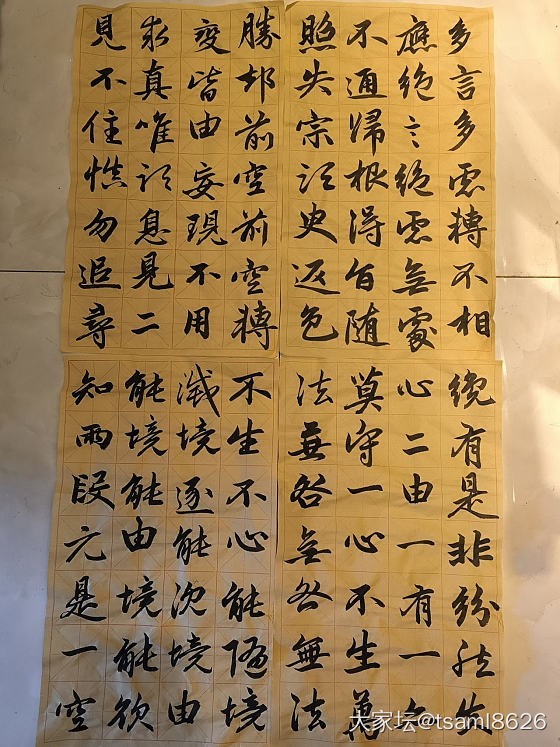 多言多慮轉不相
應絕言絕慮無處
不通歸根得旨随
照失宗須臾返色
勝却前空前空轉
變皆由妄現不用
求真唯須息見二
見不住慎勿追尋
纔有是非紛然失
心二由一有一亦
莫守一心不生萬
法無咎無咎無法
不生不心能隨境
滅境逐能沉境由
能境能由境能欲
知兩段元是一空
大家坛@tsaml8626